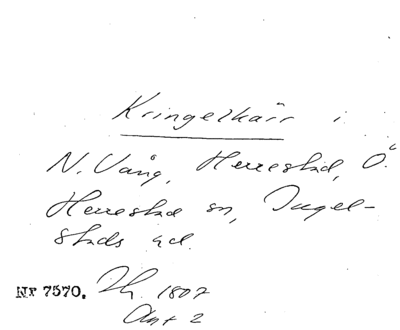 Kringelkärr i
N. Vång, Herrestad, Ö.
Herrestad sn, Ingel-
stads hd.
Nr 7570. 1807
Akt 2